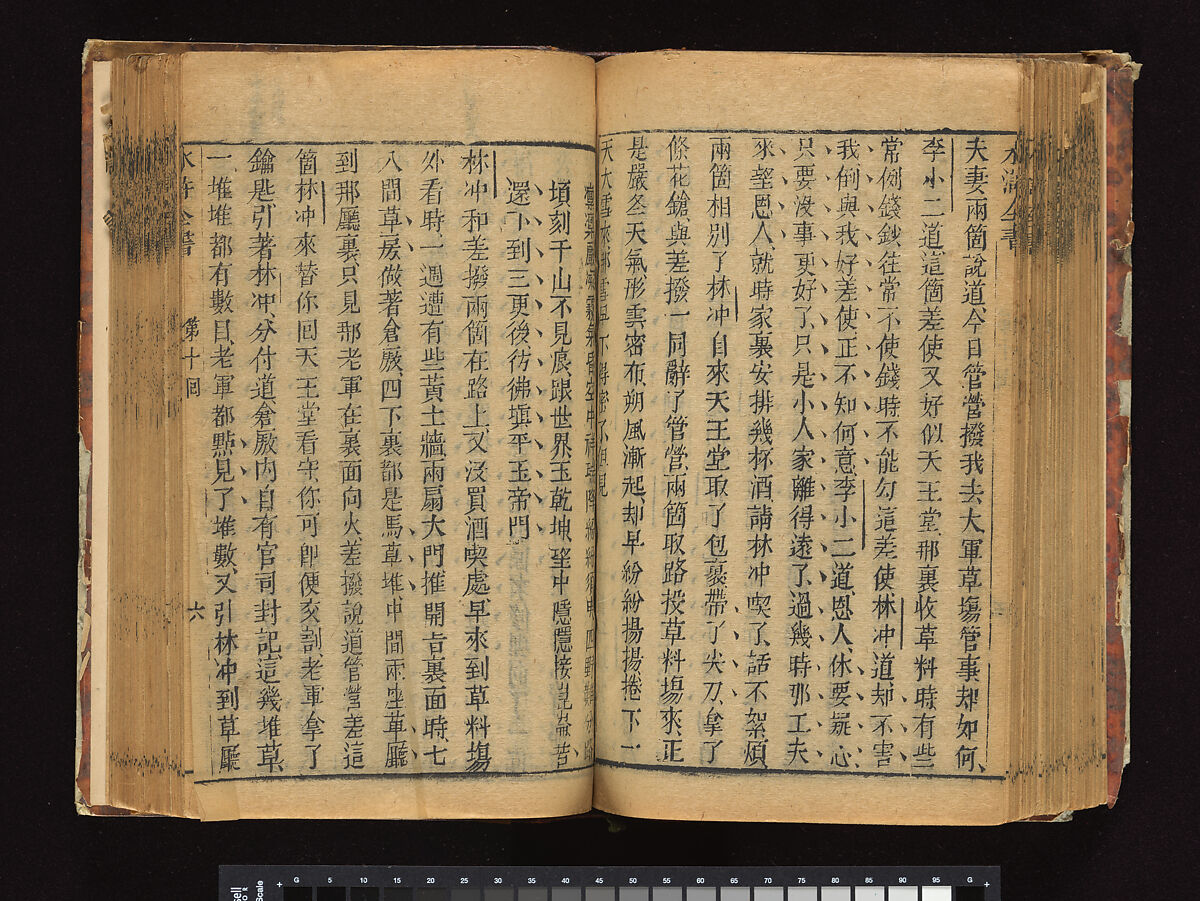 夫妻兩箇說道、今日管營撥我去大軍草塲管事、却如何、
李小二道、這箇差使又好似天王堂、那裏收草料時、有些
常例錢鈔、往常不使錢時、不能勾這差使、林冲道、却不害
我、倒與我好差使、正不知何意、李小二道、恩人、休要疑心、
只要沒事、更好了、只是小人家離得遠了、過幾時那工夫
來望恩人、就時家裏安排幾杯酒、請林冲喫了、話不絮煩、
兩箇相別了、林冲自來天王堂取了包裹、帶了尖刀、拿了
條花鎗、與差撥一同辭了管營、兩箇取路投草料塲來、正
是嚴冬天氣、彤雲密布、朔風漸起、却早紛紛揚揚捲下一
天大雪來、那雪早下得密了、但見
頃刻千山不見痕、銀世界、玉乾坤、望中隱隱接崑崙、若
還下到三更後、彷彿塡平玉帝門、
林冲和差撥兩箇在路上、又沒買酒喫處、早來到草料塲
外、看時、一週遭有些黃土牆、兩扇大門、推開看裏面時、七
八間草房做著倉厫、四下裏都是馬草堆、中間兩座草廳、
到那廳裏、只見那老軍在裏面向火、差撥說道、管營差這
箇林冲來替你回天王堂看守、你可卽便交割、老軍拿了
鑰匙、引著林冲、分付道、倉厫內自有官司封記、這幾堆草、
一堆堆都有數目、老軍都點見了堆數、又引林冲到草廳
水滸全書
第十回
六
G 5 10 15 20 25 30 35 40 45 50 55 60 65 70 75 80 85 90 95 G
Scale